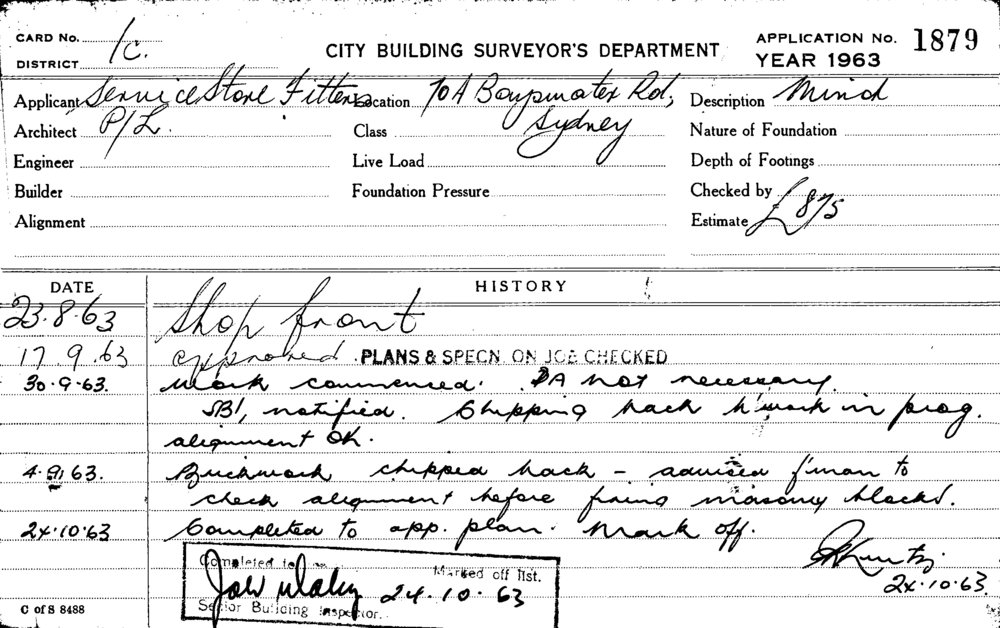 CARD No. 1c.
DISTRICT
CITY BUILDING SURVEYOR'S DEPARTMENT
APPLICATION No. 1879
YEAR 1963
Applicant Service Store Fitters Location 70A Bayswater Rd, Description Mind
Architect P/L. Class Sydney Nature of Foundation
Engineer Live Load Depth of Footings
Builder Foundation Pressure Checked by
Alignment Estimate £875
DATE HISTORY
23.8.63 Shop front
17.9.63 approved PLANS & SPECN. ON JOB CHECKED
30.9.63. Work commenced. PA not necessary.
SBI, notified. Chipping back b'work in prog.
alignment OK.
4.9.63. Brickwork chipped back - advised f'man to
check alignment before fixing masonry blocks.
24.10.63 Completed to app. plan. Mark off.
24.10.63.
Completed to Marked off list.
24.10.63
Senior Building Inspector.
C of S 8488